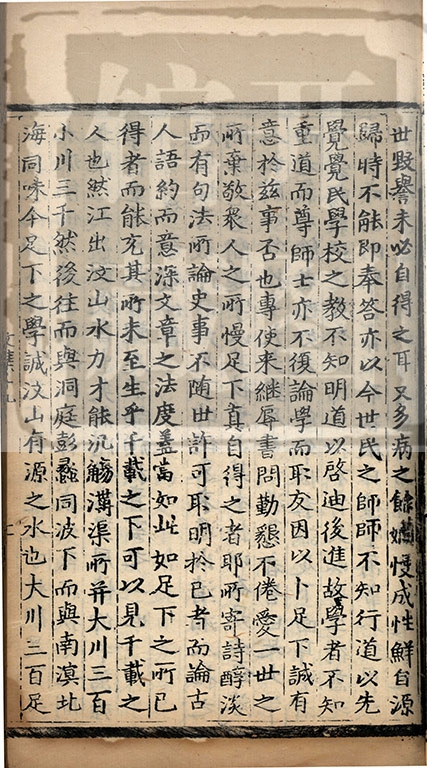 世毀譽未必自得之耳又多病之餘嬾慢成性鮮自源
歸時不能即奉答亦以今世民之師師不知行道以先
覺覺民學校之教不知明道以啓迪後進故學者不知
重道而尊師士亦不復論學而取友因以卜足下誠有
意於兹事否也專使来継辱書問勤懇不倦愛一世之
所棄敬衆人之所慢足下真自得之者耶所寄詩醇淡
而有句法所論史事不随世許可取明於已者而論古
人語約而意深文章之法度蓋當如此如足下之所已
得者而能充其所未至生乎千載之下可以見千載之
人也然江出汶山水力才能汎觴溝渠所并大川三百
小川三千然後往而與洞庭彭蠡同波下而與南溟北
海同味今足下之學誠汶山有源之水也大川三百足